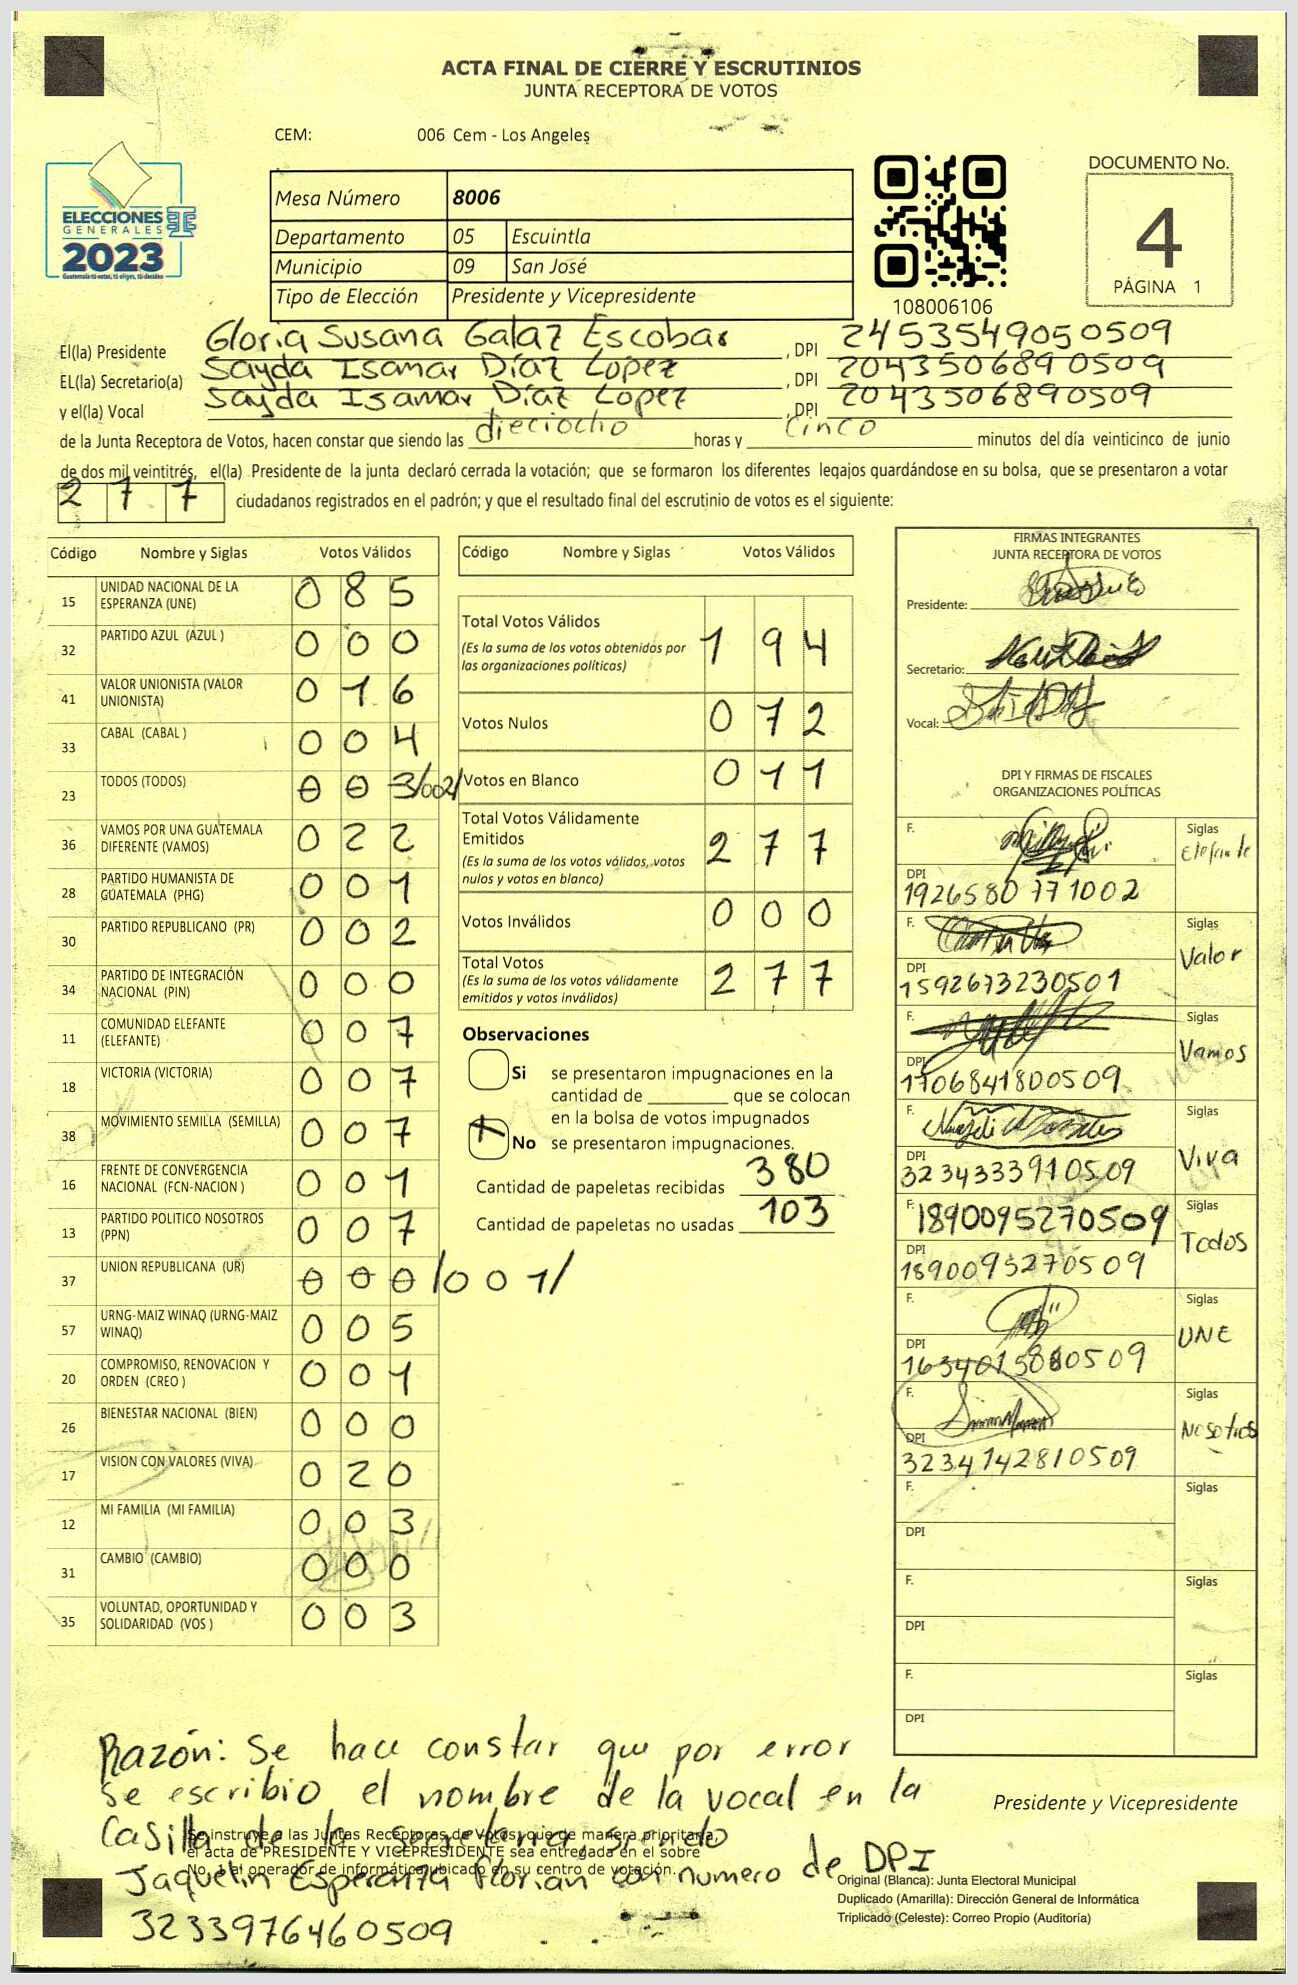 ACTA FINAL DE CIERRE Y ESCRUTINIOS
JUNTA RECEPTORA DE VOTOS
CEM: 006 Cem - Los Angeles
ELECCIONES
GENERALES
2023
Guatemala tú votas, tú eliges, tú decides
Mesa Número 8006
Departamento 05 Escuintla
Municipio 09 San José
Tipo de Elección Presidente y Vicepresidente
108006106
DOCUMENTO No.
4
PÁGINA 1
El(la) Presidente Gloria Susana Galaz Escobar , DPI 2453549050509
EL(la) Secretario(a) Sayda Isamar Díaz Lopez , DPI 2043506890509
y el(la) Vocal Sayda Isamar Díaz Lopez , DPI 2043506890509
de la Junta Receptora de Votos, hacen constar que siendo las dieciocho horas y cinco minutos del día veinticinco de junio
de dos mil veintitrés, el(la) Presidente de la junta declaró cerrada la votación; que se formaron los diferentes legajos quardándose en su bolsa, que se presentaron a votar
277 ciudadanos registrados en el padrón; y que el resultado final del escrutinio de votos es el siguiente:
Código Nombre y Siglas Votos Válidos
15 UNIDAD NACIONAL DE LA ESPERANZA (UNE) 085
32 PARTIDO AZUL (AZUL ) 000
41 VALOR UNIONISTA (VALOR UNIONISTA) 016
33 CABAL (CABAL ) 004
23 TODOS (TODOS) 003/002/
36 VAMOS POR UNA GUATEMALA DIFERENTE (VAMOS) 022
28 PARTIDO HUMANISTA DE GUATEMALA (PHG) 001
30 PARTIDO REPUBLICANO (PR) 002
34 PARTIDO DE INTEGRACIÓN NACIONAL (PIN) 000
11 COMUNIDAD ELEFANTE (ELEFANTE) 007
18 VICTORIA (VICTORIA) 007
38 MOVIMIENTO SEMILLA (SEMILLA) 007
16 FRENTE DE CONVERGENCIA NACIONAL (FCN-NACION ) 001
13 PARTIDO POLITICO NOSOTROS (PPN) 007
37 UNION REPUBLICANA (UR) 000/001/
57 URNG-MAIZ WINAQ (URNG-MAIZ WINAQ) 005
20 COMPROMISO, RENOVACION Y ORDEN (CREO ) 001
26 BIENESTAR NACIONAL (BIEN) 000
17 VISION CON VALORES (VIVA) 020
12 MI FAMILIA (MI FAMILIA) 003
31 CAMBIO (CAMBIO) 000
35 VOLUNTAD, OPORTUNIDAD Y SOLIDARIDAD (VOS ) 003
Código Nombre y Siglas Votos Válidos
Total Votos Válidos 194
(Es la suma de los votos obtenidos por
las organizaciones políticas)
Votos Nulos 072
Votos en Blanco 011
Total Votos Válidamente
Emitidos 277
(Es la suma de los votos válidos, votos
nulos y votos en blanco)
Votos Inválidos 000
Total Votos 277
(Es la suma de los votos válidamente
emitidos y votos inválidos)
Observaciones
Si se presentaron impugnaciones en la
cantidad de ________ que se colocan
en la bolsa de votos impugnados
No se presentaron impugnaciones.
Cantidad de papeletas recibidas 380
Cantidad de papeletas no usadas 103
FIRMAS INTEGRANTES
JUNTA RECEPTORA DE VOTOS
Presidente:
Secretario:
Vocal:
DPI Y FIRMAS DE FISCALES
ORGANIZACIONES POLÍTICAS
F. Siglas Elefante
DPI 1926580771002
F. Siglas Valor
DPI 1592673230501
F. Siglas Vamos
DPI 1706841800509
F. Siglas Viva
DPI 3234333910509
F. 1890095270509 Siglas Todos
DPI 1890095270509
F. Siglas UNE
DPI
F. Siglas Nosotros
DPI 3234142810509
F. Siglas
DPI
F. Siglas
DPI
F. Siglas
DPI
Razón: Se hace constar que por error
se escribio el nombre de la vocal en la
Casilla de la secretaria, siendo
Jaquelin Esperanza Florian con numero de DPI
3233976460509
Se instruye a las Juntas Receptoras de Votos, que de manera prioritaria,
el acta de PRESIDENTE Y VICEPRESIDENTE sea entregada en el sobre
No. 1 al operador de informática ubicado en su centro de votación.
Presidente y Vicepresidente
Original (Blanca): Junta Electoral Municipal
Duplicado (Amarilla): Dirección General de Informática
Triplicado (Celeste): Correo Propio (Auditoría)